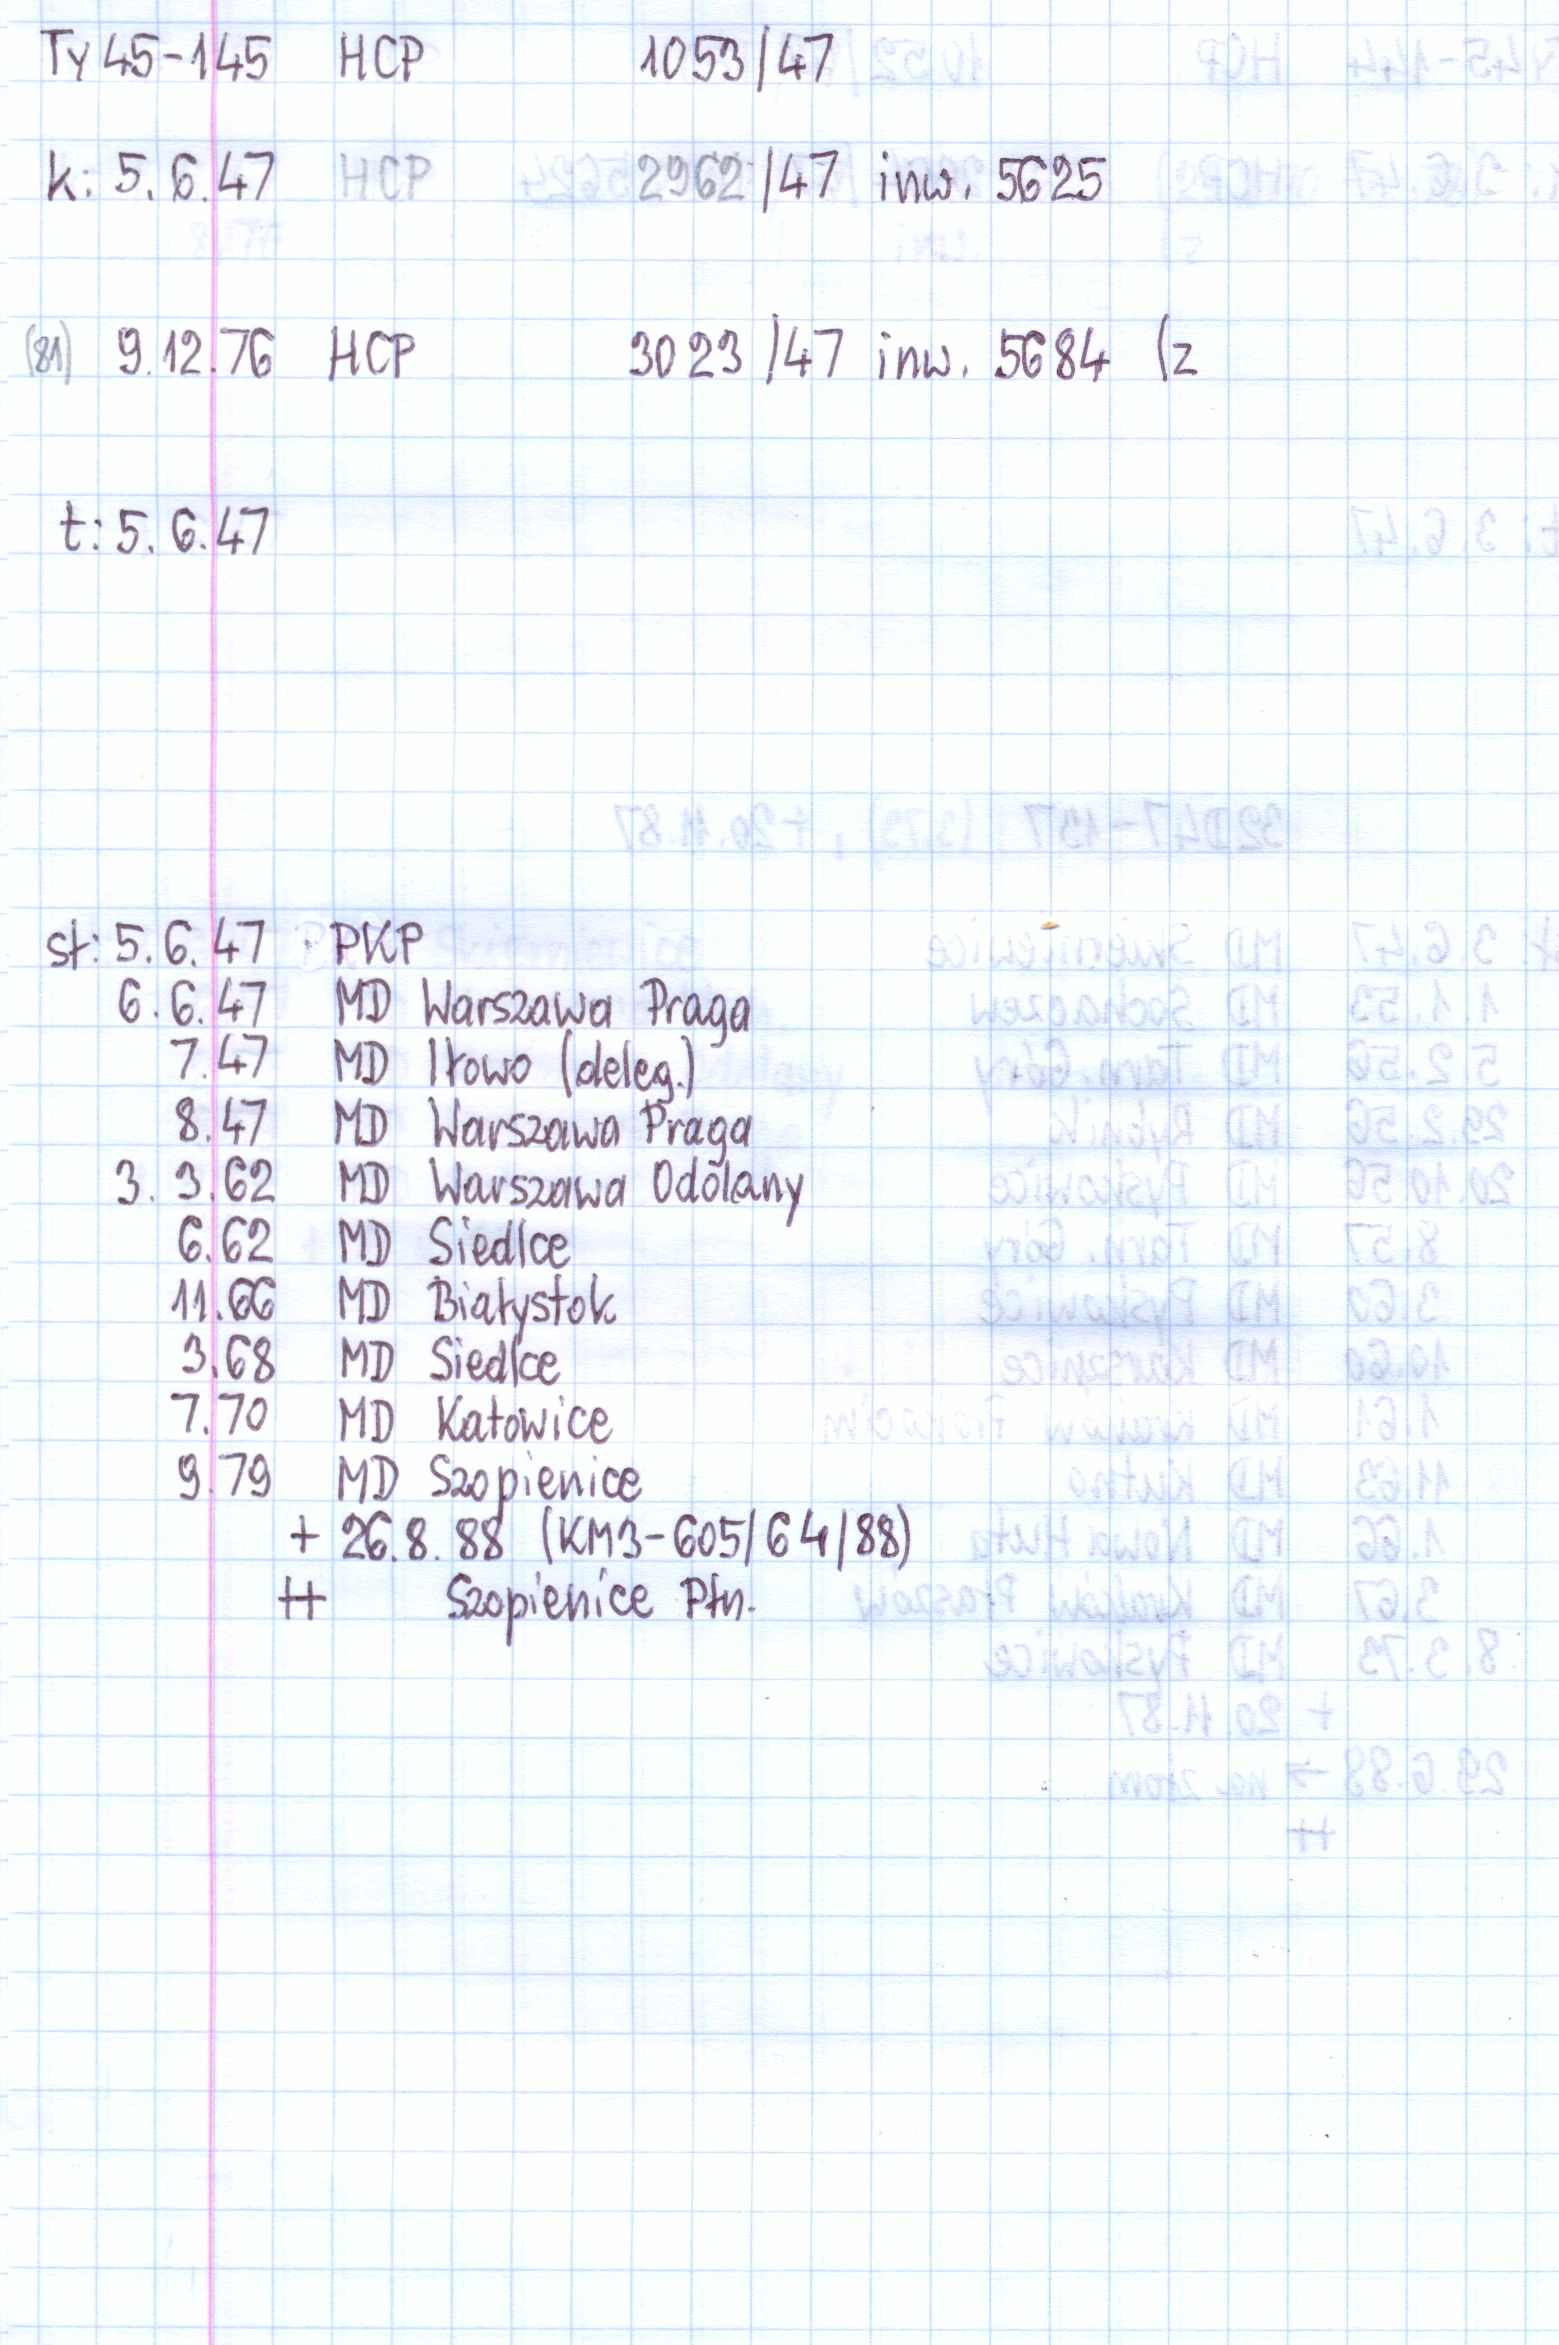 Ty 45-145 HCP 1053/47
k: 5.6.47 HCP 2962/47 inw. 5625
(81) 9.12.76 HCP 3023/47 inw. 5684 (z
t: 5.6.47
st: 5.6.47 PKP
6.6.47 MD Warszawa Praga
7.47 MD Iłowo (deleg.)
8.47 MD Warszawa Praga
3.3.62 MD Warszawa Odolany
6.62 MD Siedlce
11.66 MD Białystok
3.68 MD Siedlce
7.70 MD Katowice
9.79 MD Szopienice
+ 26.8.88 (KM3-605/64/88)
++ Szopienice Płn.